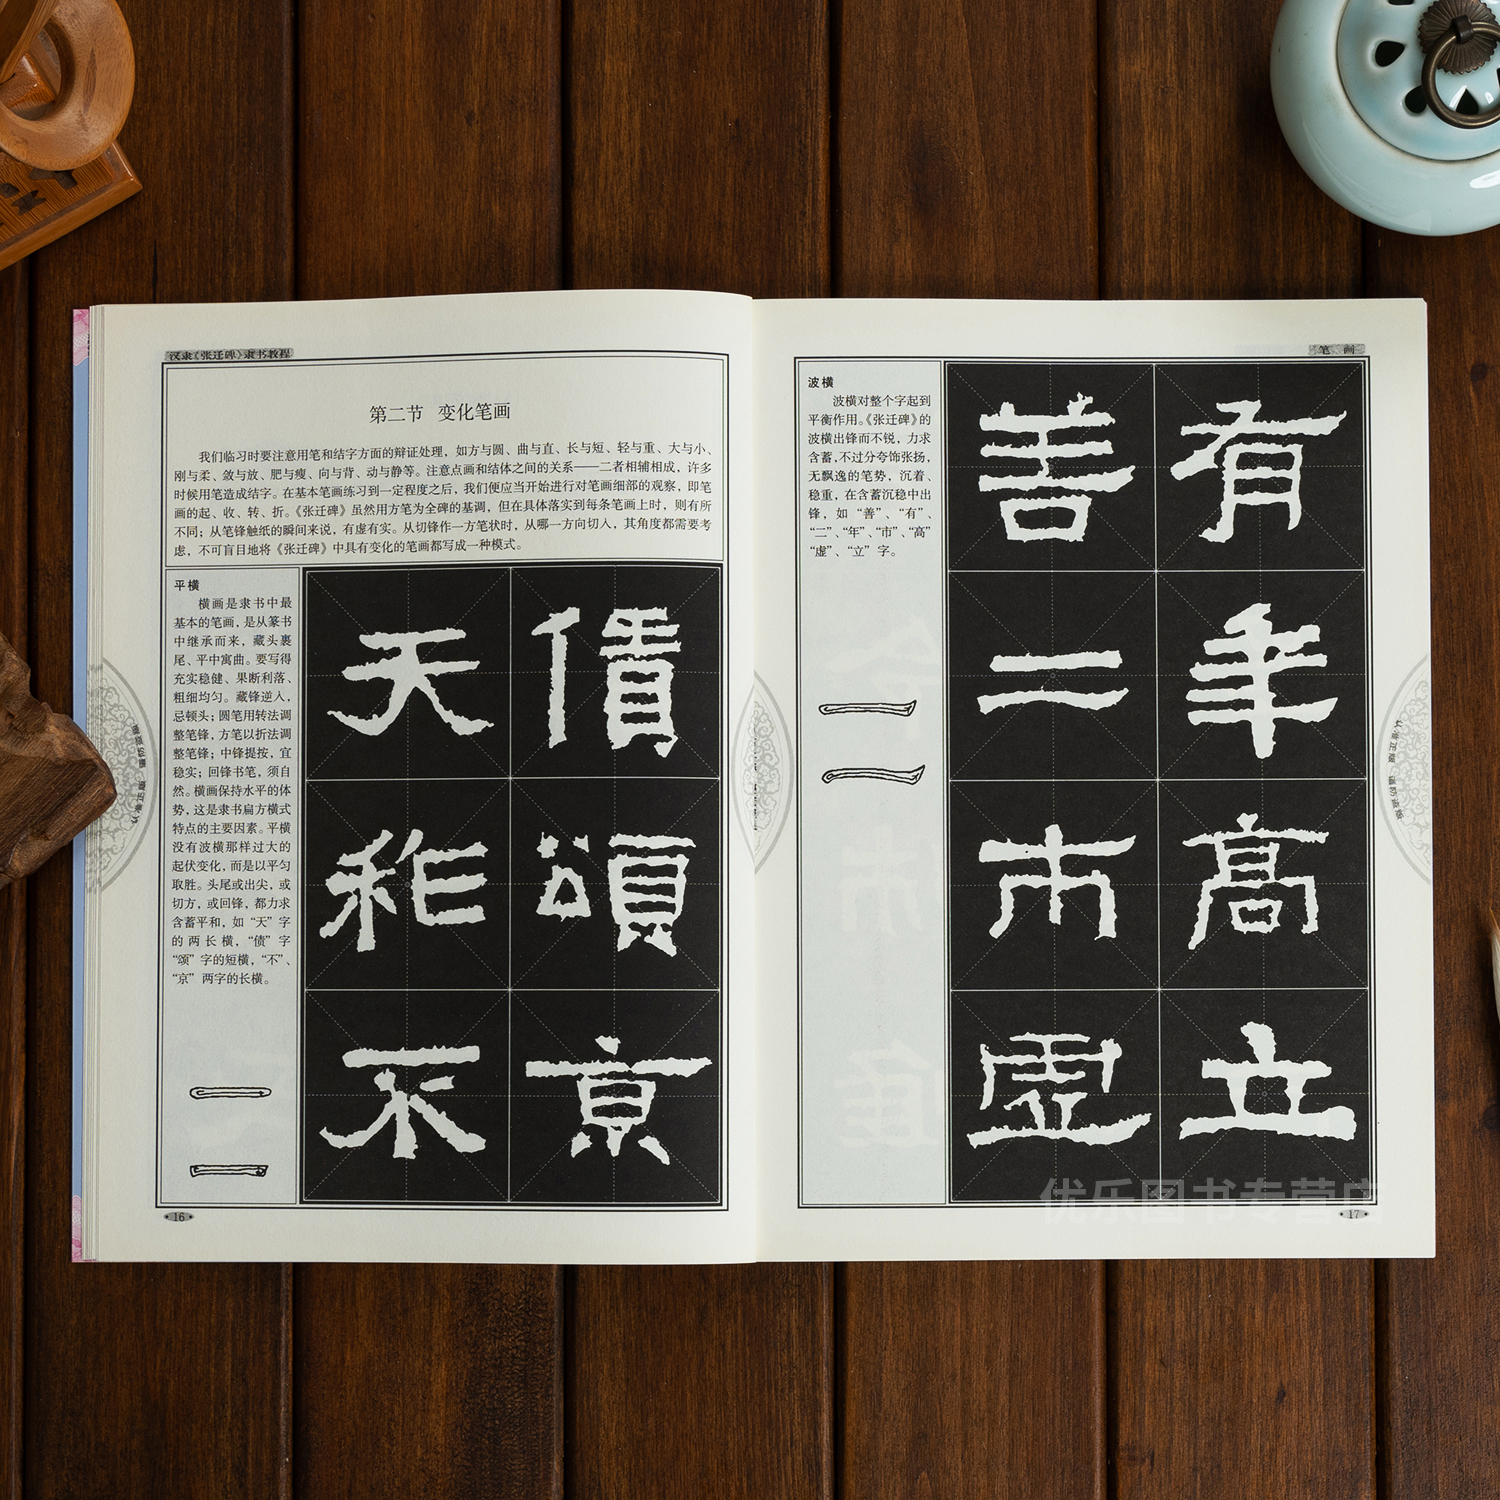 汉隶《张迁碑》隶书教程
第二节 变化笔画
我们临习时要注意用笔和结字方面的辩证处理，如方与圆、曲与直、长与短、轻与重、大与小、
刚与柔、敛与放、肥与瘦、向与背、动与静等。注意点画和结体之间的关系——二者相辅相成，许多
时候用笔造成结字。在基本笔画练习到一定程度之后，我们便应当开始进行对笔画细部的观察，即笔
画的起、收、转、折。《张迁碑》虽然用方笔为全碑的基调，但在具体落实到每条笔画上时，则有所
不同；从笔锋触纸的瞬间来说，有虚有实。从切锋作一方笔状时，从哪一方向切入，其角度都需要考
虑，不可盲目地将《张迁碑》中具有变化的笔画都写成一种模式。
平横
横画是隶书中最
基本的笔画，是从篆书
中继承而来，藏头裹
尾、平中寓曲。要写得
充实稳健、果断利落、
粗细均匀。藏锋逆入，
忌顿头；圆笔用转法调
整笔锋，方笔以折法调
整笔锋；中锋提按，宜
稳实；回锋书笔，须自
然。横画保持水平的体
势，这是隶书扁方横式
特点的主要因素。平横
没有波横那样过大的
起伏变化，而是以平匀
取胜。头尾或出尖，或
切方，或回锋，都力求
含蓄平和，如“天”字
的两长横，“债”字
“颂”字的短横，“不”、
“京”两字的长横。
天 債
頌
不 京
16
笔画
波横
波横对整个字起到
平衡作用。《张迁碑》的
波横出锋而不锐，力求
含蓄，不过分夸饰张扬，
无飘逸的笔势，沉着、
稳重，在含蓄沉稳中出
锋，如“善”、“有”、
“二”、“年”、“市”、“高”
“虚”、“立”字。
善 有
二 年
市 高
虚 立
17
优乐图书专营店